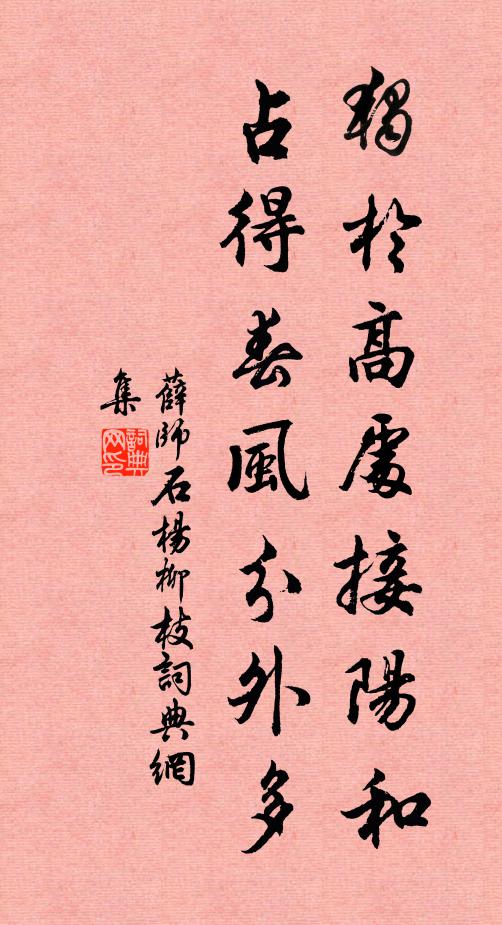 獨於高處接陽和
占得春風分外多
薛師石楊柳枝詞典網
集
詞典网印